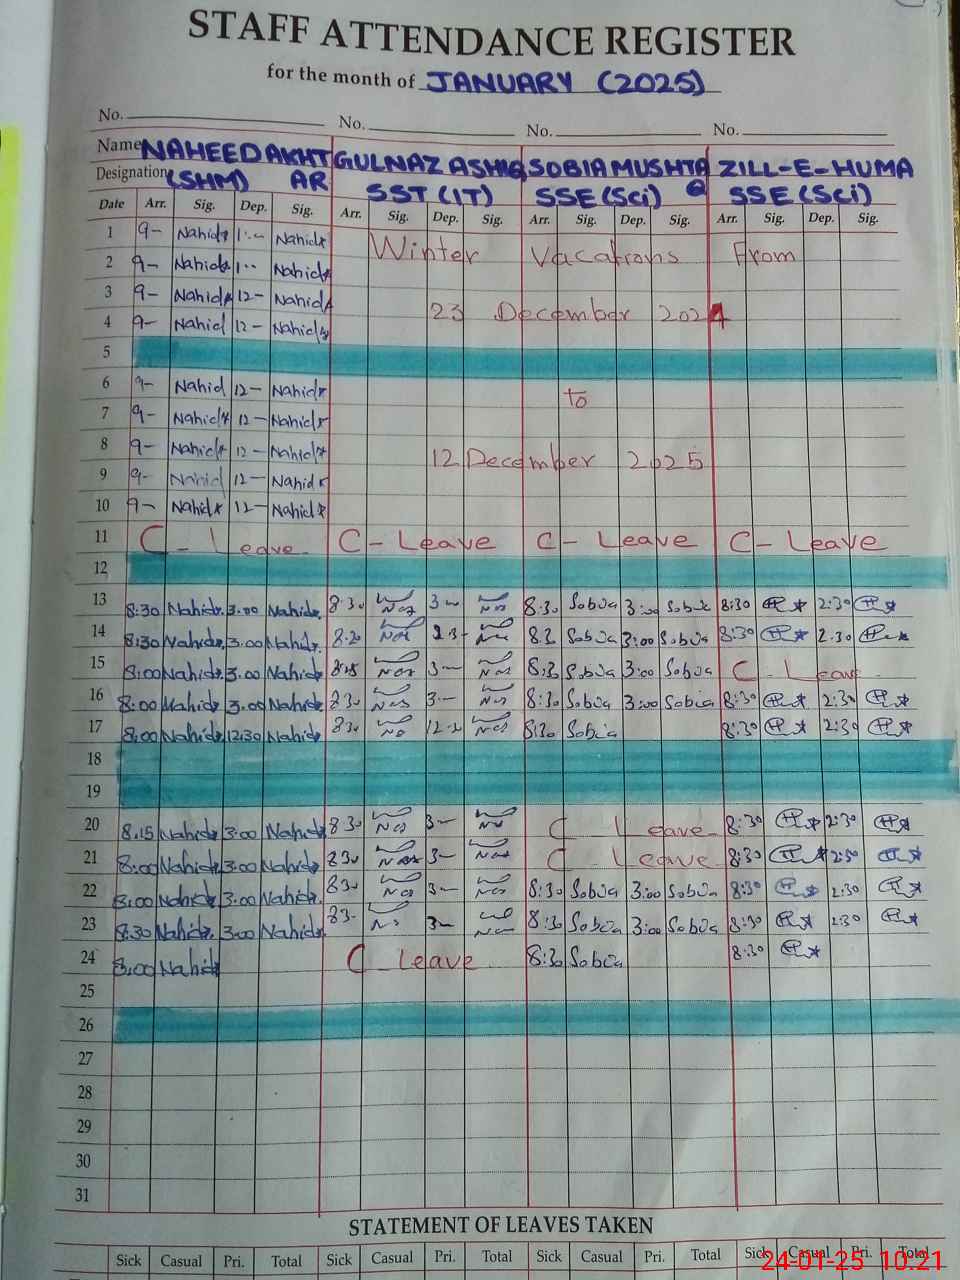 STAFF ATTENDANCE REGISTER
for the month of JANUARY (2025)
No. No. No. No.
Name NAHEED AKHT GULNAZ ASHIQ SOBIA MUSHTA ZILL-E-HUMA
Designation (SHM) AR SST (IT) SSE (Sci) Q SSE (Sci)
Date Arr. Sig. Dep. Sig. Arr. Sig. Dep. Sig. Arr. Sig. Dep. Sig. Arr. Sig. Dep. Sig.
1 9- Nahid Nahid Winter Vacations From
2 9- Nahid Nahid
3 9- Nahid 12- Nahid 23 December 2024
4 9- Nahid 12- Nahid
5
6 9- Nahid 12- Nahid to
7 9- Nahid 12- Nahid
8 9- Nahid 12- Nahid 12 December 2025
9 9- Nahid 12- Nahid
10 9- Nahid 12- Nahid
11 C - Leave C - Leave C - Leave C - Leave
12
13 8:30 Nahid 3.00 Nahid 8 30 3- 8:30 Sobia 3:00 Sobia 8:30 2:30
14 8:30 Nahid 3.00 Nahid Sobia 3:00 Sobia 8:30 2.30
15 8:00 Nahid 3.00 Nahid 3- 8:30 Sobia 3:00 Sobia C - Leave
16 8:00 Nahid 3.00 Nahid 830 3- 8:30 Sobia 3:00 Sobia 8:30 2:30
17 8:00 Nahid 12:30 Nahid 830 8:30 Sobia 8:30 2:30
18
19
20 8.15 Nahid 3:00 Nahid 8 30 3- C - Leave 8:30 2:30
21 8:00 Nahid 3:00 Nahid 830 3- C - Leave 8:30 2:30
22 8:00 Nahid 3:00 Nahid 83- 3- 8:30 Sobia 3:00 Sobia 8:30 2:30
23 8:30 Nahid 3:00 Nahid 83- 3- 8:30 Sobia 3:00 Sobia 8:30 2:30
24 8:00 Nahid C - Leave 8:30 Sobia 8:30
25
26
27
28
29
30
31
STATEMENT OF LEAVES TAKEN
Sick Casual Pri. Total Sick Casual Pri. Total Sick Casual Pri. Total Sick Casual Pri. Total
24-01-25 10:21